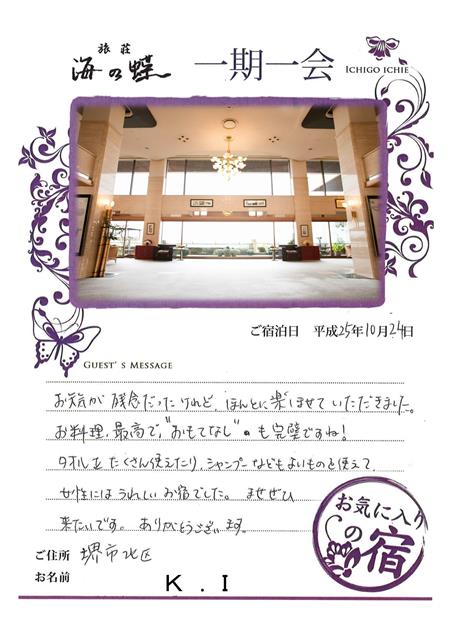 旅荘
海の蝶
一期一会
ICHIGO ICHIE
ご宿泊日 平成25年10月24日
GUEST'S MESSAGE
お天気が残念だったけれど、ほんとに楽しませていただきました。
お料理、最高で、"おもてなし"のも完璧ですね!
タオルをたくさん使えたり、シャンプーなどもよいものを使えて、
女性にはうれしいお宿でした。 またぜひ
来たいです。 ありがとうございます。
お気に入り
の宿
ご住所 堺市北区
お名前 K.I